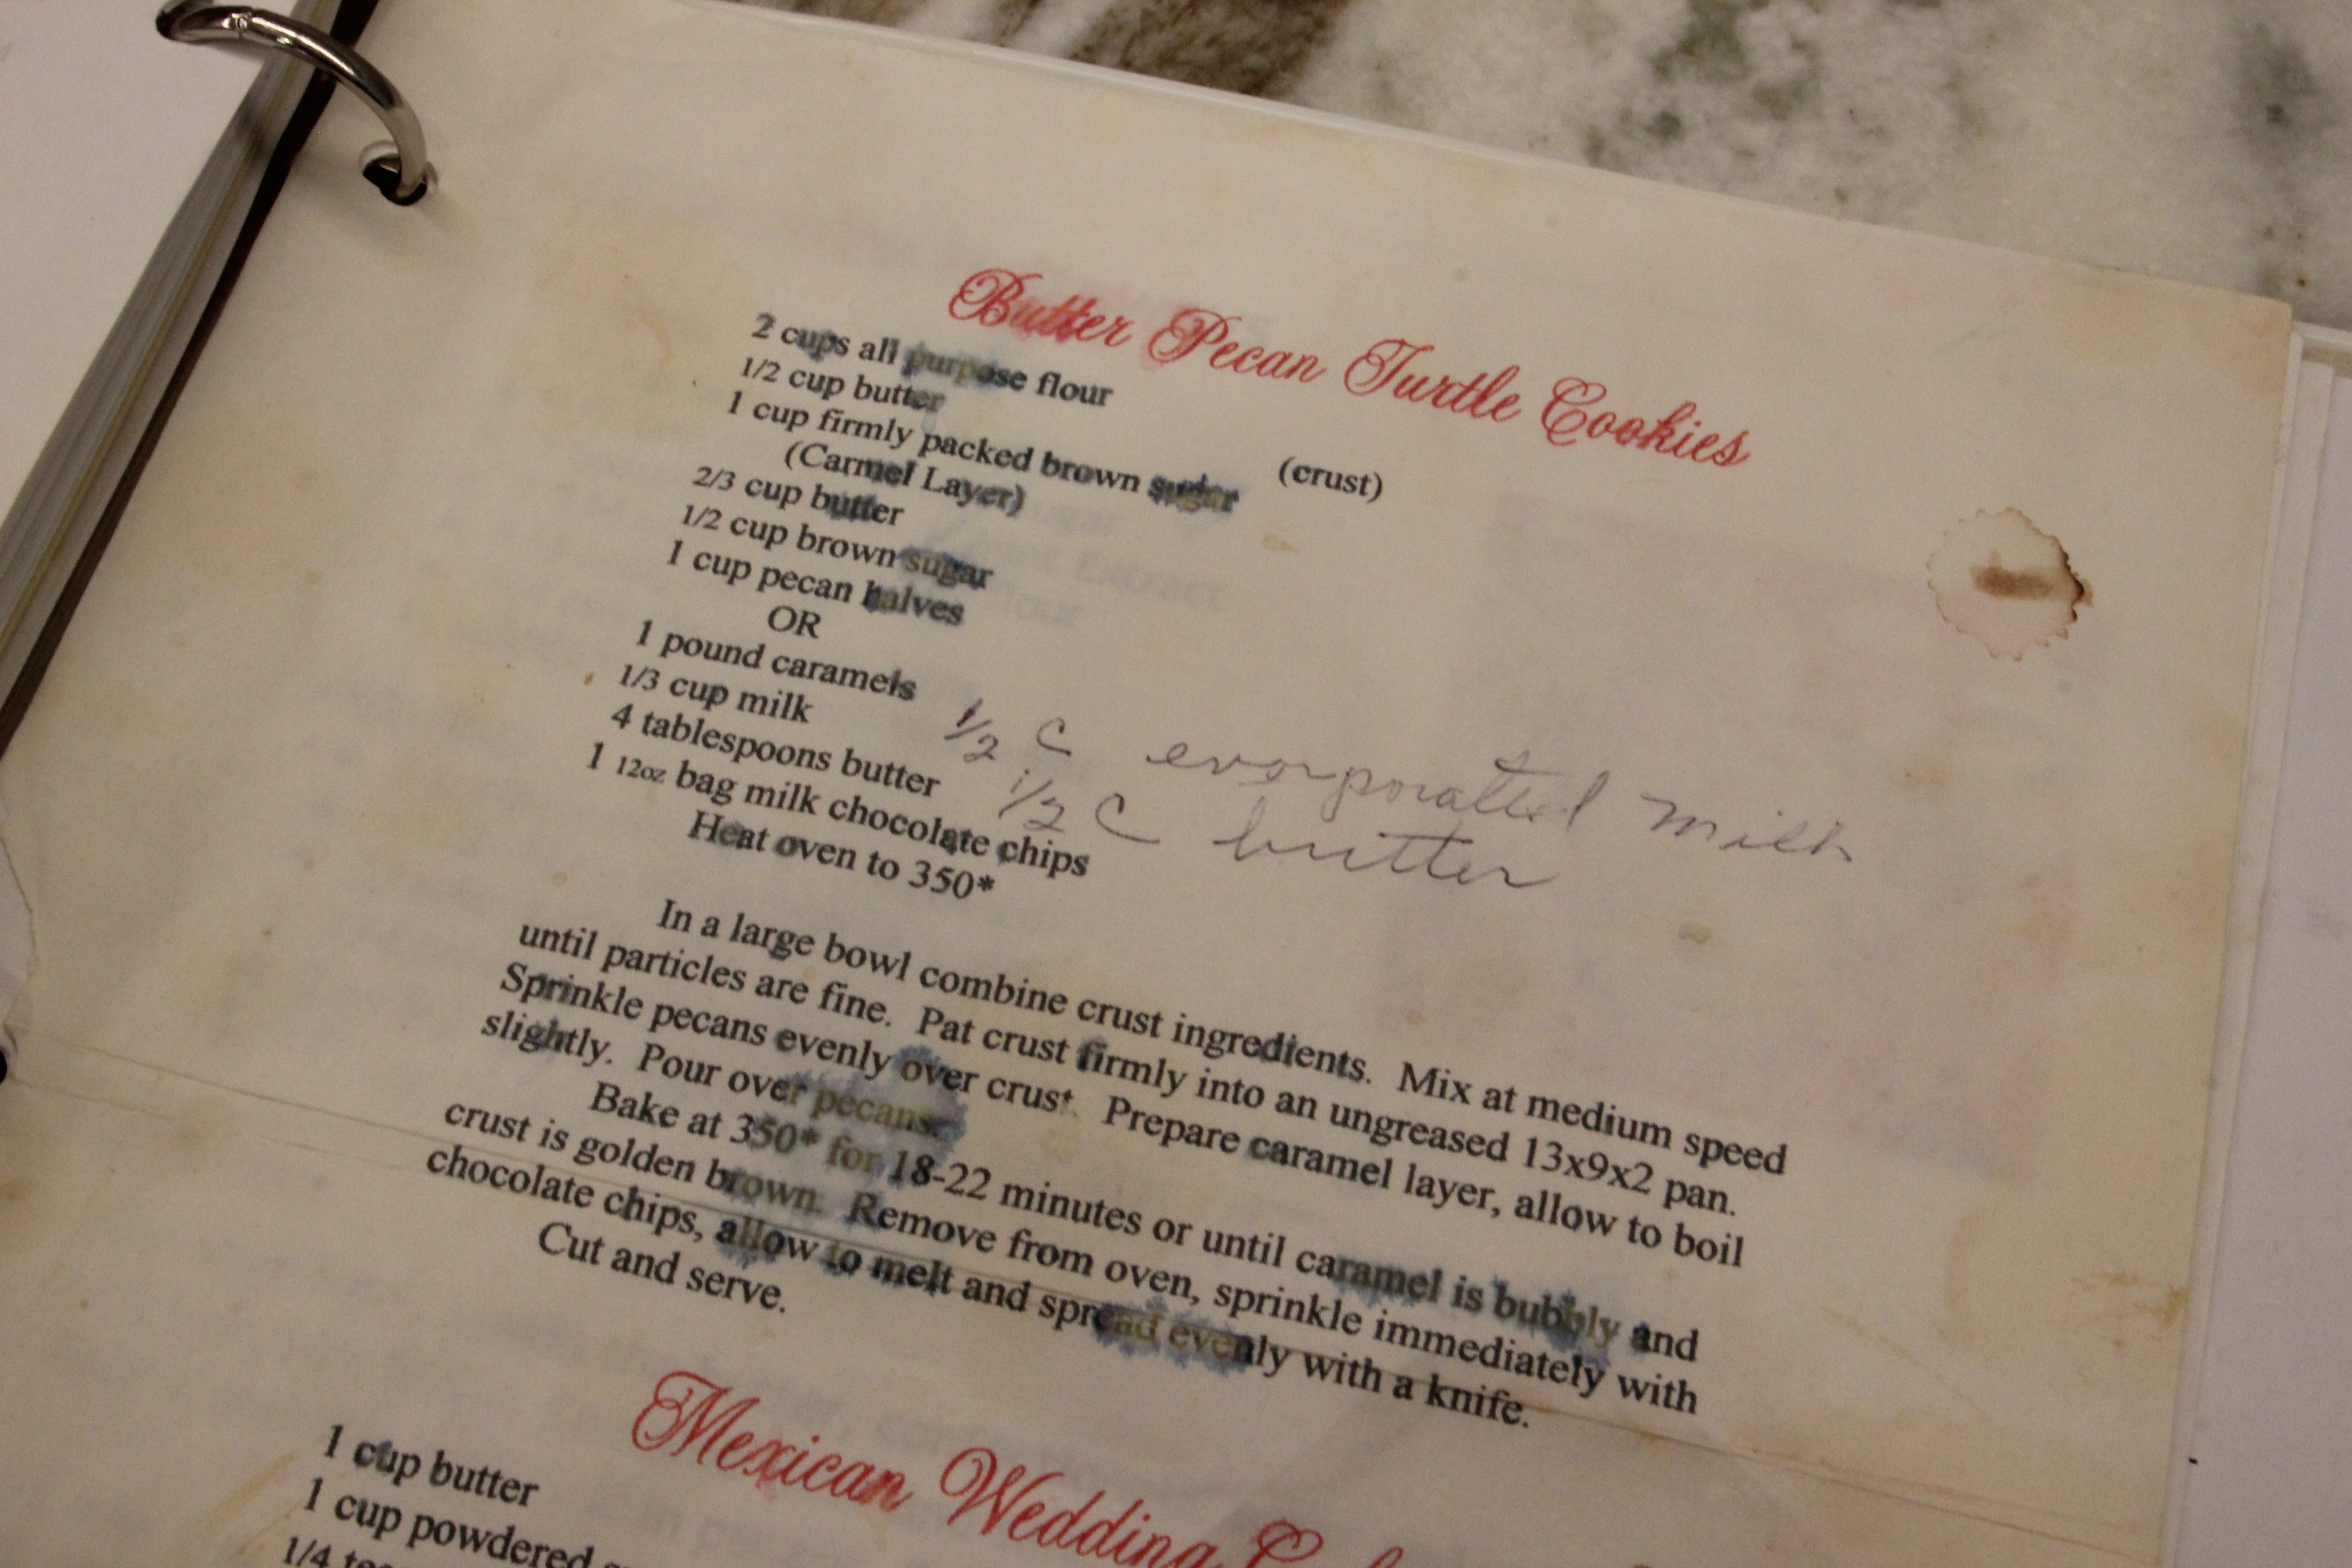 Butter Pecan Turtle Cookies
2 cups all purpose flour
1/2 cup butter
1 cup firmly packed brown sugar (crust)
(Carmel Layer)
2/3 cup butter
1/2 cup brown sugar
1 cup pecan halves
OR
1 pound caramels
1/3 cup milk 1/2 C evorporatted milk
4 tablespoons butter 1/2 C butter
1 12oz bag milk chocolate chips
Heat oven to 350*
In a large bowl combine crust ingredients. Mix at medium speed
until particles are fine. Pat crust firmly into an ungreased 13x9x2 pan.
Sprinkle pecans evenly over crust. Prepare caramel layer, allow to boil
slightly. Pour over pecans.
Bake at 350* for 18-22 minutes or until caramel is bubbly and
crust is golden brown. Remove from oven, sprinkle immediately with
chocolate chips, allow to melt and spread evenly with a knife.
Cut and serve.
Mexican Wedding
1 cup butter
1 cup powdered
1/4